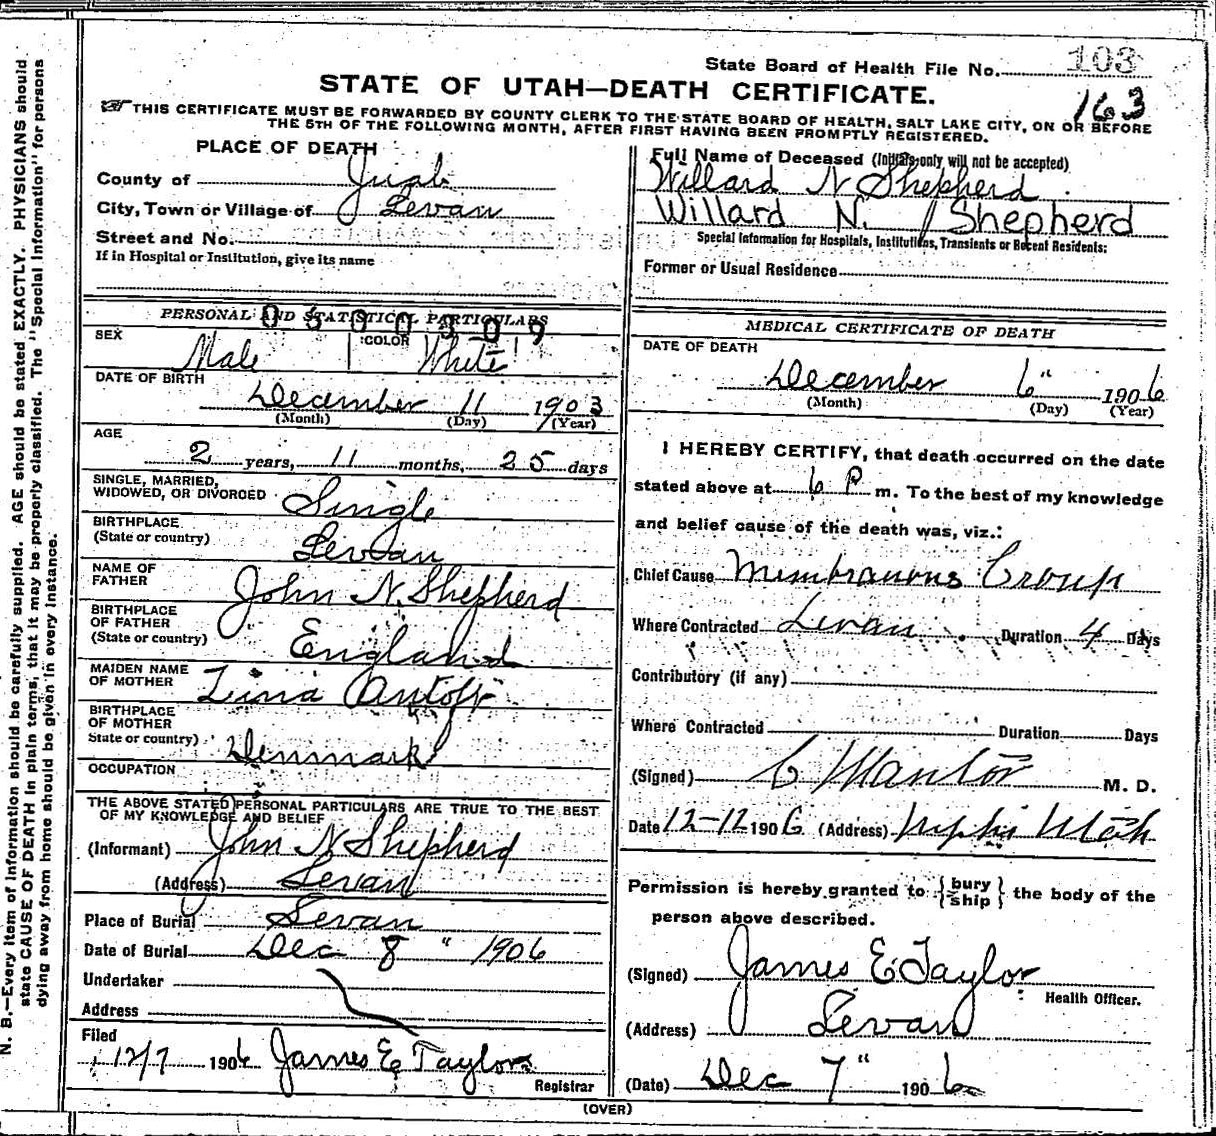 State Board of Health File No. 103
STATE OF UTAH—DEATH CERTIFICATE.
163
THIS CERTIFICATE MUST BE FORWARDED BY COUNTY CLERK TO THE STATE BOARD OF HEALTH, SALT LAKE CITY, ON OR BEFORE
THE 5TH OF THE FOLLOWING MONTH, AFTER FIRST HAVING BEEN PROMPTLY REGISTERED.
PLACE OF DEATH
County of Juab
City, Town or Village of Levan
Street and No.
If in Hospital or Institution, give its name
Full Name of Deceased (Initials only will not be accepted)
Willard N Shepherd
Willard N. Shepherd
Special Information for Hospitals, Institutions, Transients or Recent Residents:
Former or Usual Residence
PERSONAL AND STATISTICAL PARTICULARS
0500309
SEX Male COLOR White
DATE OF BIRTH
December 11 1903
(Month) (Day) (Year)
AGE
2 years, 11 months, 25 days
SINGLE, MARRIED,
WIDOWED, OR DIVORCED Single
BIRTHPLACE
(State or country) Levan
NAME OF
FATHER John N. Shepherd
BIRTHPLACE
OF FATHER
(State or country) England
MAIDEN NAME
OF MOTHER
BIRTHPLACE
OF MOTHER
State or country) Denmark
OCCUPATION
THE ABOVE STATED PERSONAL PARTICULARS ARE TRUE TO THE BEST
OF MY KNOWLEDGE AND BELIEF
(Informant) John N Shepherd
(Address) Levan
Place of Burial Levan
Date of Burial Dec 8" 1906
Undertaker
Address
Filed
12/7 1906 James E Taylor
Registrar
MEDICAL CERTIFICATE OF DEATH
DATE OF DEATH
December 6" 1906
(Month) (Day) (Year)
I HEREBY CERTIFY, that death occurred on the date
stated above at 6 P m. To the best of my knowledge
and belief cause of the death was, viz.:
Chief Cause Membranous Croup
Where Contracted Levan Duration 4 Days
Contributory (if any)
Where Contracted Duration Days
(Signed) M. D.
Date 12-12 1906 (Address) Nephi Utah
Permission is hereby granted to {bury
ship} the body of the
person above described.
(Signed) James E Taylor
Health Officer.
(Address) Levan
(Date) Dec 7" 1906
(OVER)
N. B.—Every item of information should be carefully supplied. AGE should be stated EXACTLY. PHYSICIANS should
state CAUSE OF DEATH in plain terms, that it may be properly classified. The "Special Information" for persons
dying away from home should be given in every instance.